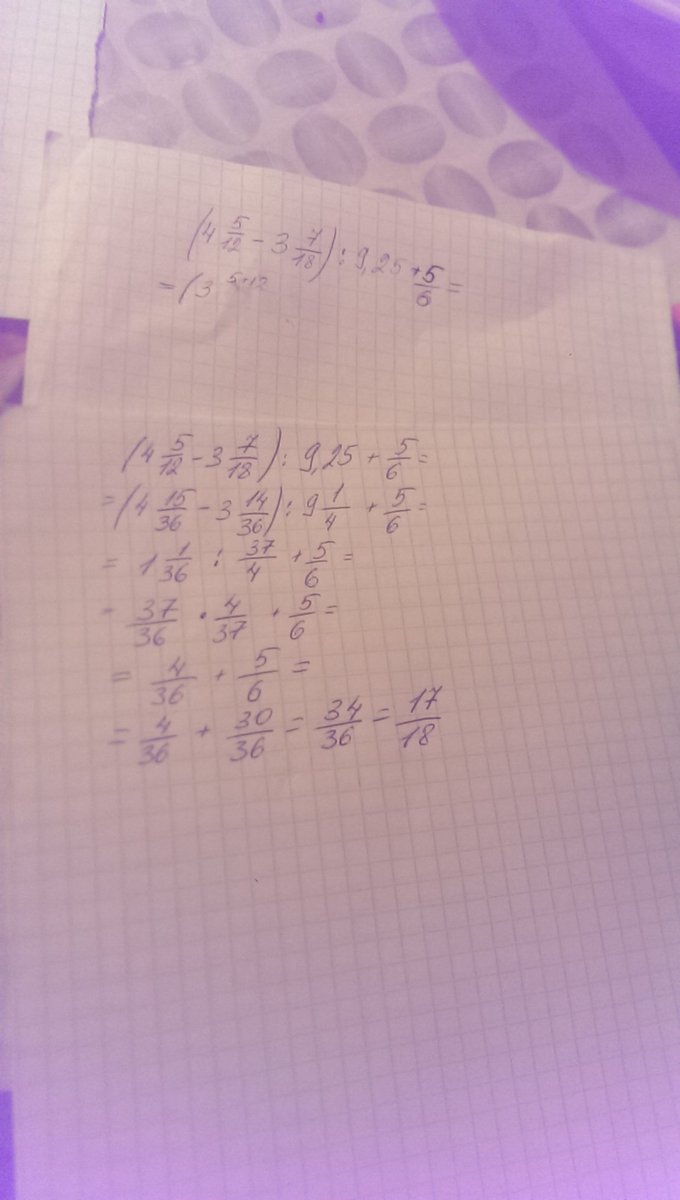 (4 5/12 - 3 7/18) : 9,25 + 5/6 =
= (3 5+12
(4 5/12 - 3 7/18) : 9,25 + 5/6 =
= (4 15/36 - 3 14/36) : 9 1/4 + 5/6 =
= 1 1/36 : 37/4 + 5/6 =
= 37/36 · 4/37 + 5/6 =
= 4/36 + 5/6 =
= 4/36 + 30/36 = 34/36 = 17/18